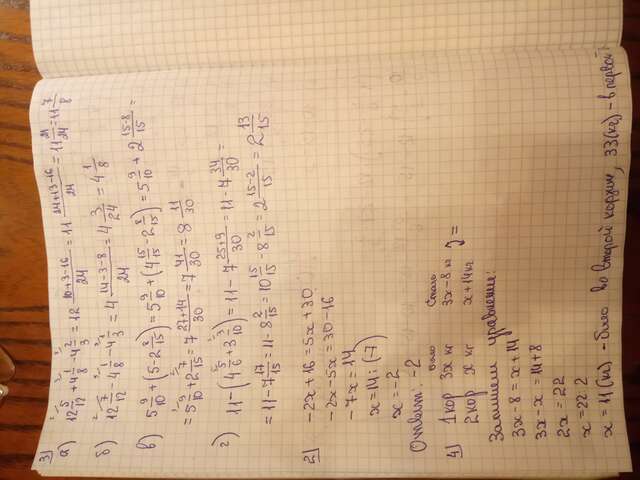 3)
а) 12 5/12 + 4 1/8 - 4 2/3 = 12 (10+3-16)/24 = 11 (34+13-16)/24 = 11 21/24 = 11 7/8
б) 12 7/12 - 4 1/8 - 4 1/3 = 4 (14-3-8)/24 = 4 3/24 = 4 1/8
в) 5 9/10 + (5 - 2 8/15) = 5 9/10 + (4 15/15 - 2 8/15) = 5 9/10 + 2 (15-8)/15 =
= 5 9/10 + 2 7/15 = 7 (27+14)/30 = 7 41/30 = 8 11/30
г) 11 - (4 5/6 + 3 3/10) = 11 - 7 (25+9)/30 = 11 - 7 34/30 =
= 11 - 7 17/15 = 11 - 8 2/15 = 10 15/15 - 8 2/15 = 2 (15-2)/15 = 2 13/15
2) -2x + 16 = 5x + 30
-2x - 5x = 30 - 16
-7x = 14
x = 14 : (-7)
x = -2
Ответ: -2
4) Было Стало
1 кор 3x кг 3x - 8 кг
2 кор x кг x + 14 кг } =
Запишем уравнение:
3x - 8 = x + 14
3x - x = 14 + 8
2x = 22
x = 22 : 2
x = 11 (кг) - было во второй корзине, 33 (кг) - в первой